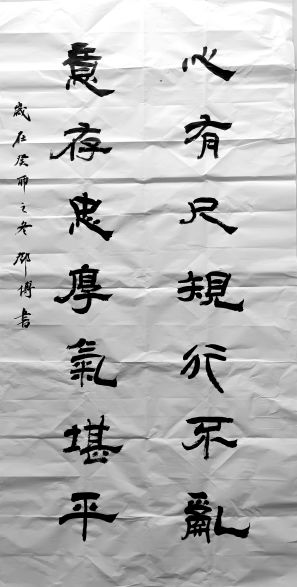 心有尺規行不亂
意存忠厚氣堪平
歲在癸卯之冬邵博書